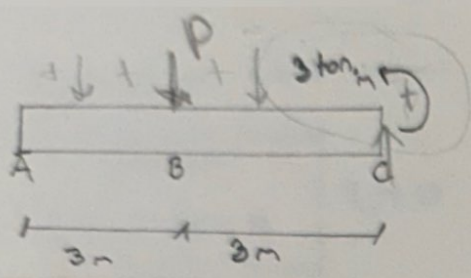 P
+ + + 3 ton.m +
A B C
3m 3m